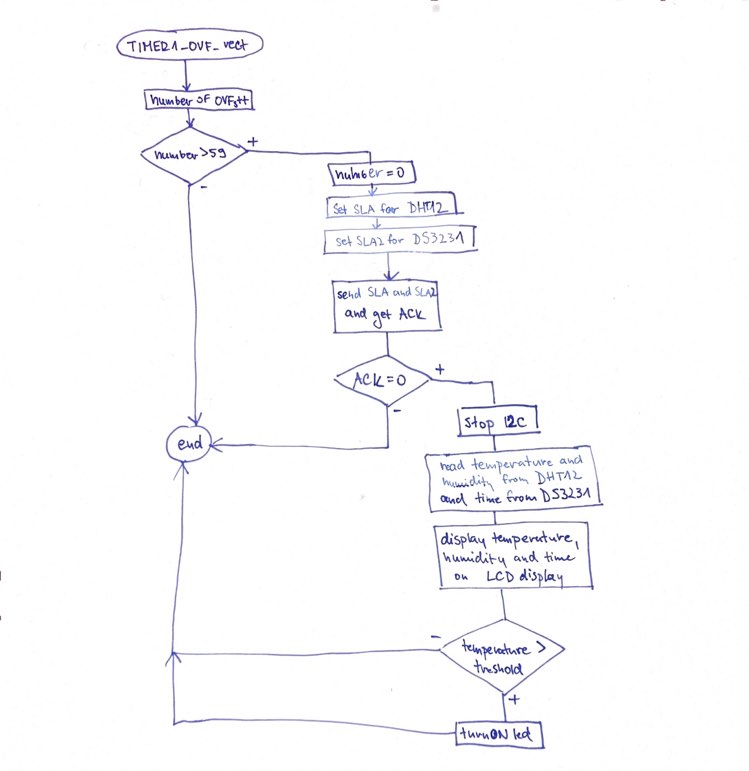 TIMER1_OVF_vect
number of OVFs++
number>59
+
-
number=0
Set SLA for DHT12
set SLA2 for DS3231
send SLA and SLA2
and get ACK
ACK=0
+
-
end
Stop I2C
read temperature and
humidity from DHT12
and time from DS3231
display temperature,
humidity and time
on LCD display
-
temperature >
treshold
+
turnON led